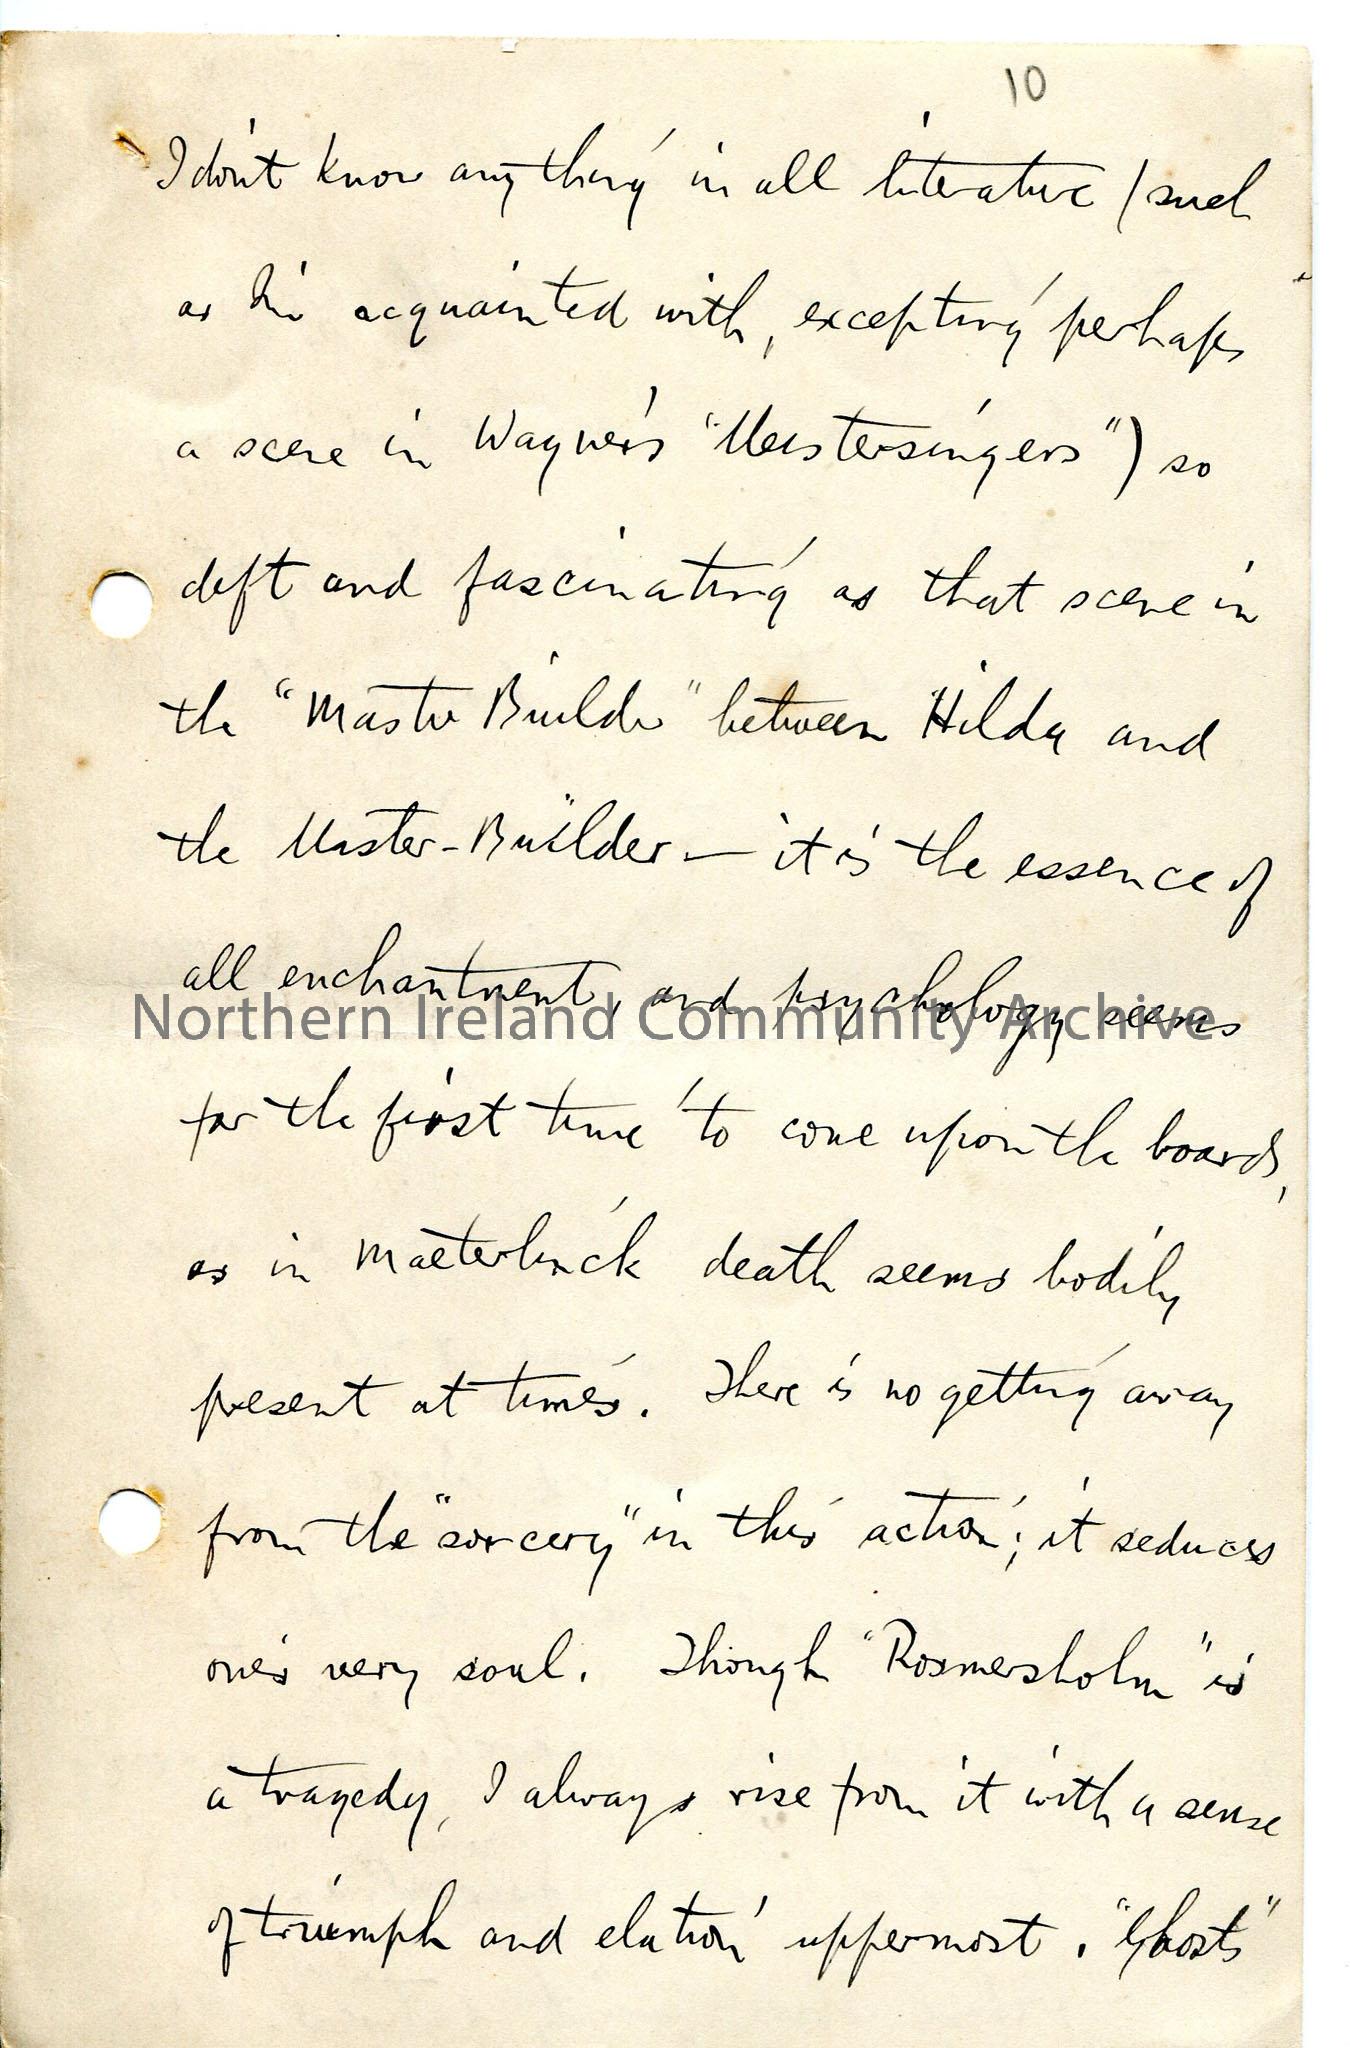 10
I don't know anything in all literature (such
as I'm acquainted with, excepting perhaps
a scene in Wagner's "Meistersingers") so
deft and fascinating as that scene in
the "Master Builder" between Hilda and
the Master-Builder — it is the essence of
all enchantment, and psychology seems
Northern Ireland Community Archive
for the first time to come upon the boards,
as in Maeterlinck death seems bodily
present at times. There is no getting away
from the "sorcery" in this action; it seduces
one's very soul. Though "Rosmersholm" is
a tragedy, I always rise from it with a sense
of triumph and elation uppermost. "Ghosts"